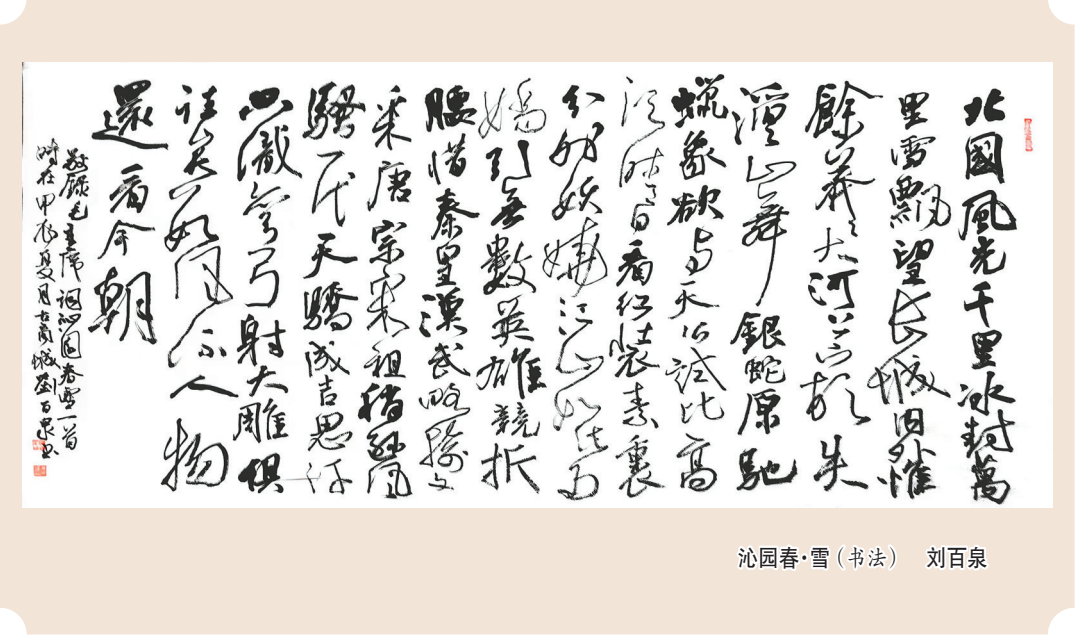 北國風光千里冰封萬
里雪飄望长城内外惟
餘莽莽大河上下頓失
滔滔山舞銀蛇原馳
蠟象欲与天公試比高
須晴日看红装素裹
分外妖嬈江山如此多
嬌引無數英雄競折
腰惜秦皇漢武略輸文
采唐宗宋祖稍遜風
騷一代天驕成吉思汗
只識彎弓射大雕俱
往矣数風流人物
還看今朝
敬錄毛主席詞沁園春雪一首
時在甲辰夏月古城劉百泉書
沁园春·雪（书法） 刘百泉